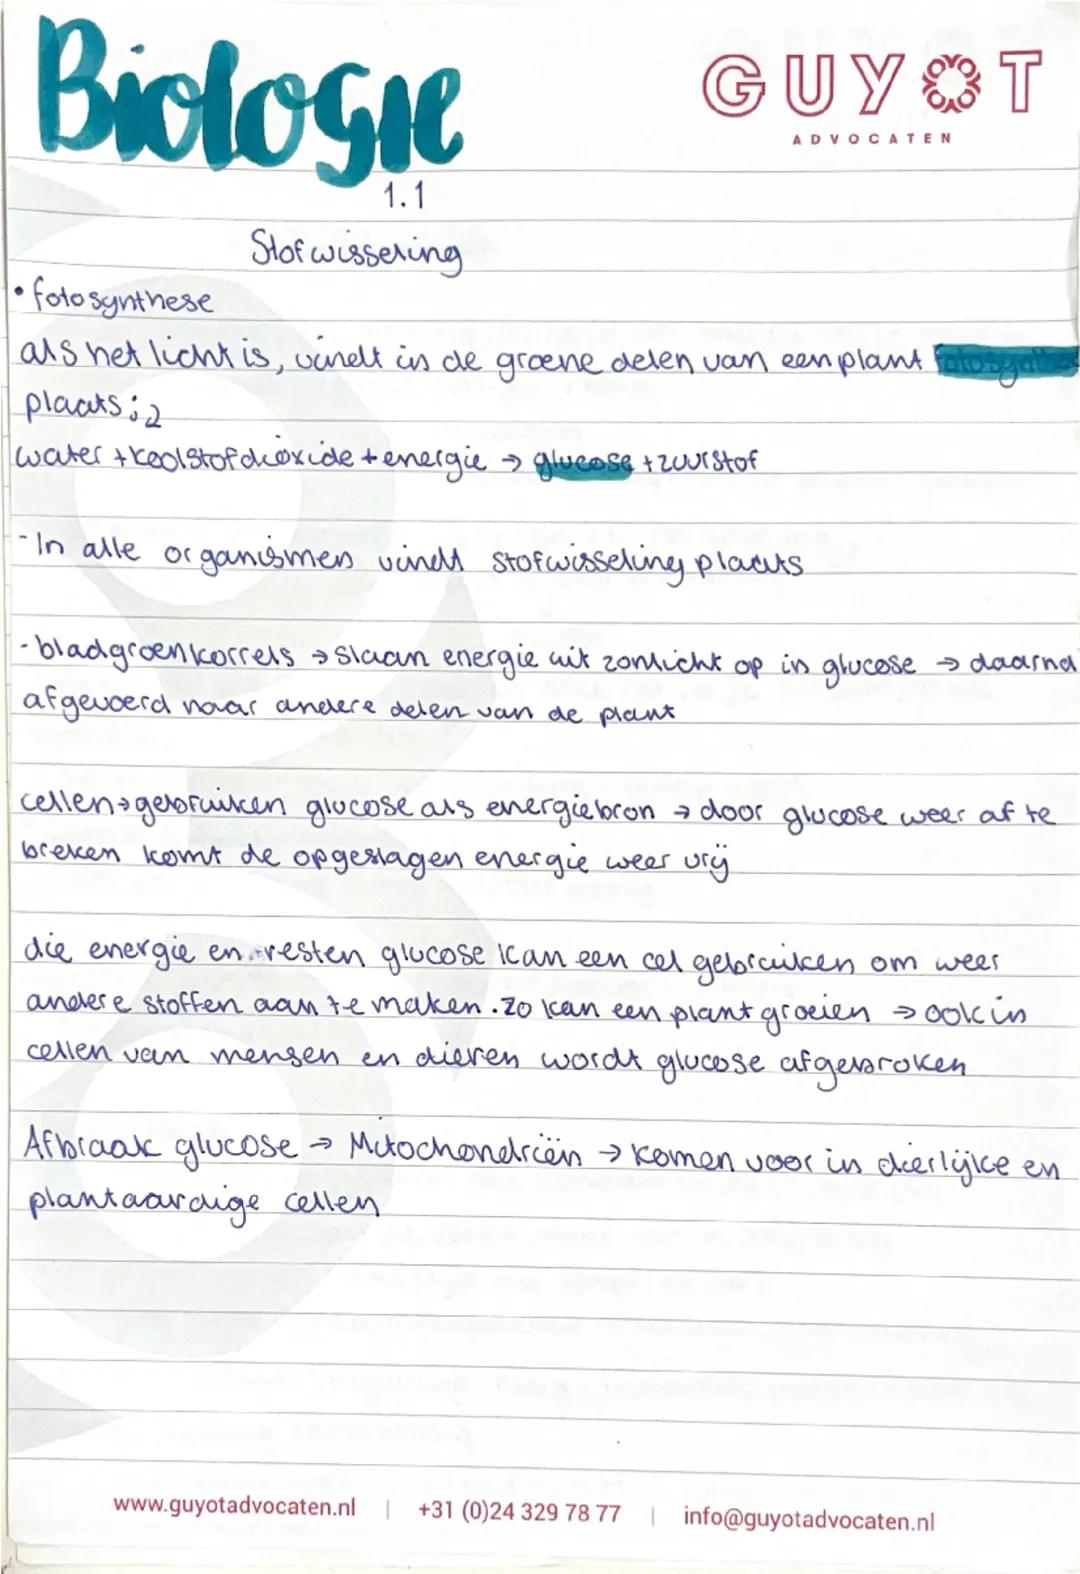 Biologie
GUYOT
ADVOCATEN
1.1
Stofwisseling
• fotosynthese
als het licht is, vindt in de groene delen van een plant fotosynthese
plaats:
water + koolstofdioxide + energie → glucose + zuurstof
- In alle organismen vindt stofwisseling plaats
- bladgroenkorrels → slaan energie uit zonlicht op in glucose → daarna
afgevoerd naar andere delen van de plant
cellen → gebruiken glucose als energiebron → door glucose weer af te
breken komt de opgeslagen energie weer vrij
die energie en resten glucose kan een cel gebruiken om weer
andere stoffen aan te maken. Zo kan een plant groeien → ook in
cellen van mensen en dieren wordt glucose afgebroken
Afbraak glucose → Mitochondriën → komen voor in dierlijke en
plantaardige cellen
www.guyotadvocaten.nl | +31 (0)24 329 78 77 | info@guyotadvocaten.nl